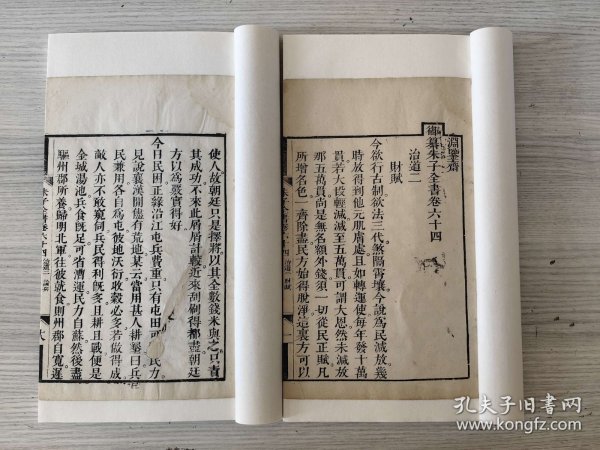 淵鑒齋
御纂朱子全書卷六十四
治道二
財賦
今欲行古制欲法三代煞隔霄壤今說為民減放幾
時放得到他元肌膚處且如轉運使每年發十萬
貫若大段輕減減至五萬貫可謂大恩然未減放
那五萬貫尚是無名額外錢須一切從民正賦凡
所增名色一齊除盡民方始得脫淨這裏方可以
使人故朝廷只是擇將以其全數錢米與之只責
其成功不來此屑屑計較近來刮刷得都盡朝廷
方以為覈實得好
今日民困正緣沿江屯兵費重只有屯田可民力
見說襄漢間儘有荒地某云當用甚人耕墾曰兵
民兼用各自為屯彼地沃衍收穀必多若做得成
敵人亦不敢窺伺兵民得利既多且耕且戰便是
金城湯池兵食既足可省漕運民方自蘇然後盡
驅州郡所養歸明北軍往彼就食則州郡自寬遲
朱子全書卷六十四 治道二 論兵
六
治道二 財賦
一
孔夫子旧书网
www.kongfz.com